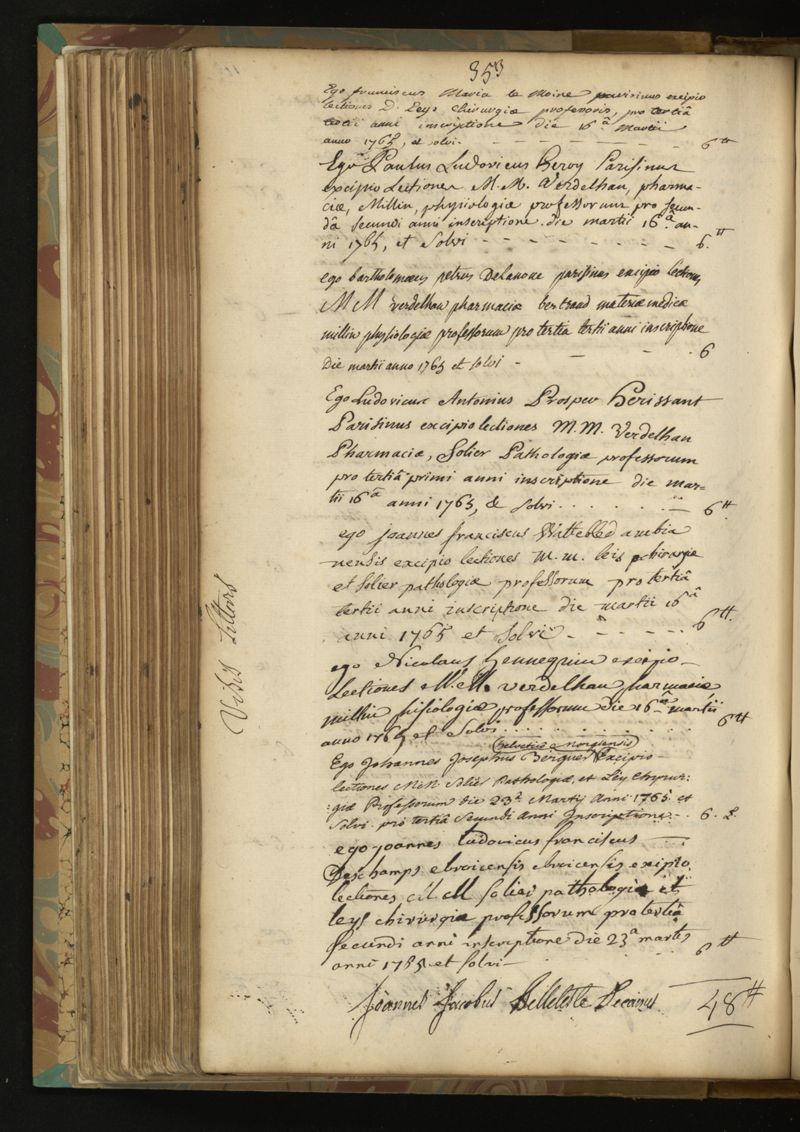 353
Ego franciscus Maria le Moine parisinus excipio
lectiones D. Leys chirurgiæ professoris, pro tertiâ
tertii anni inscriptione die 16â Martii
anno 1765, et solvi. 6tt
Ego Paulus Ludovicus Heroy Parisinus
excipio Lectiones M.M. Verdelhan, pharma-
ciæ, Millin, physiologiæ professorum pro secun-
dâ secundi anni inscriptione die martii 16â an-
ni 1765, et Solvi 6.tt
ego bartholomæus petrus Delanoue parisinus excipio lectiones
MM verdelhan pharmaciæ bertrand materiæ medicæ
millin physiologiæ professorum pro tertia tertii anni inscriptione
Die martii anno 1765 et solvi - 6
Ego Ludovicus Antonius Prosper Herissant
Parisinus excipio lectiones M.M. Verdelhan
Pharmaciæ, Solier Pathologiæ professorum
pro tertiâ primi anni inscriptione die mar-
tii 16â anni 1765, & solvi 6tt
ego joannes franciscus Wattebled ambia
nensis excipio lectiones m.m. leis chirurgiæ
et solier pathologiæ professorum pro tertiâ
tertii anni inscriptione die martii 16â
anni 1765 et Solvi - 6tt
ego Nicolaus hennequin excipio
Lectiones M.M. verdelhan parmaciæ
millin phisiologiæ professorum die 16â martii
anno 1765 et Solvi 6tt
helvetiæ
Ego Johannes Josephus Excipio
lectiones MM Pathologiæ, et Ley Chyrur:
:giæ Professorum die 23â Martij Anni 1765 et
Solvi pro tertiâ Secundi Anni Inscriptione. 6. L.
ego joannes ludovicus franciscus
Deschamps ebroicensis ebroicensis excipio
lectiones M M solier pathologiæ et
leys chirurgiæ professorum pro tertiâ
secundi anni inscriptione die 23â
anni 1765 et solvi 6tt
Joannes Jacobus Belleteste Decanus 48tt